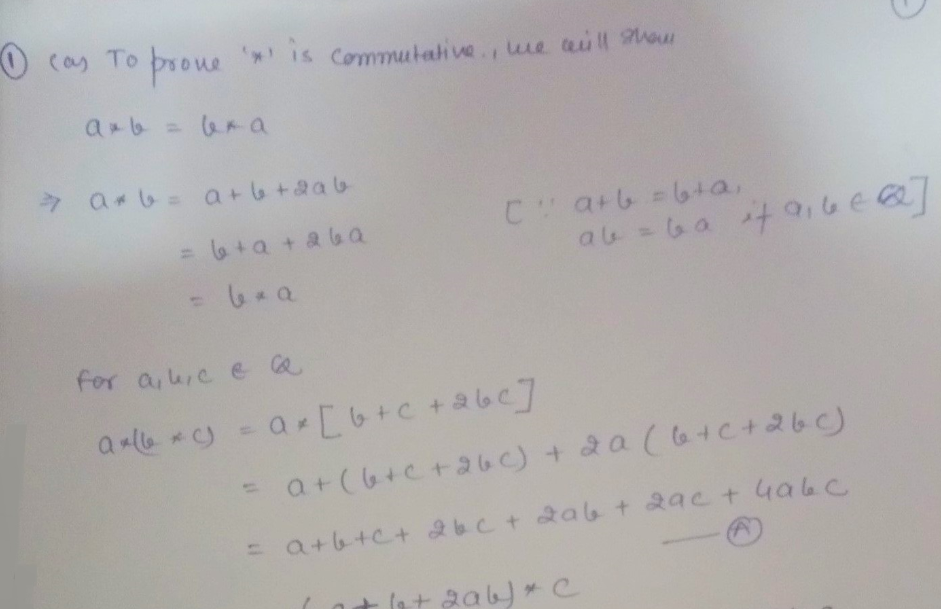 ① (a) To prove '*' is commutative., we will show
a * b = b * a
⇒ a * b = a + b + 2ab
[∵ a + b = b + a,
= b + a + 2ba
ab = ba if a, b ∈ Q]
= b * a
for a, b, c ∈ Q
a*(b * c) = a * [b + c + 2bc]
= a + (b + c + 2bc) + 2a (b + c + 2bc)
= a + b + c + 2bc + 2ab + 2ac + 4abc
— Ⓐ
(a + b + 2ab) * c